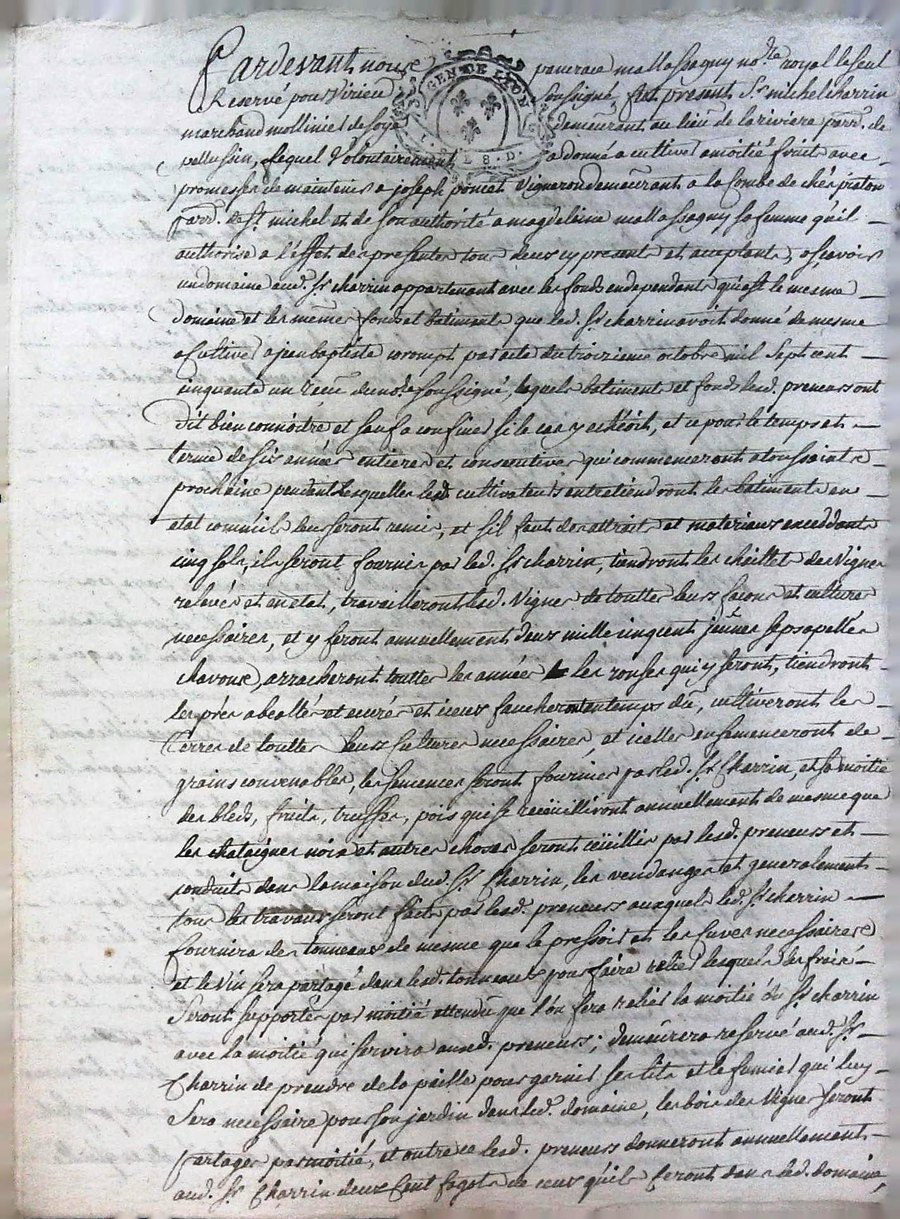 Pardevant nous pancrace mallassagny no.re royal la seul
Reservé pour Virieu soussigné, fut présent S.r michel charrin
GEN DE LYON
marchand mollinier de soye demeurant au lieu de la riviere parr. de
pellussin, lequel volontairement a donné a cultive a moitié fruit avec
promesse de maintenir a joseph poncet Vigneron demeurant a la Combe de
parr. de S.t michel et de son authorité a magdelaine mallassagny sa femme qu'il
authorise a l'effet des presentes tous deux cy present et acceptant, asçavoir
un domaine aud. S.r charrin appartenant avec les fonds en dependants qui est le mesme
domaine et les memes fonds et batiments que led. S.r charrin avoit donné de mesme
a Cultive a jean baptiste coront, par acte du troizieme octobre mil Sept cent
cinquante un reçu dud. no.re soussigné, lesquels batiment et fonds lesd. preneurs ont
dit bien connoitre et sauf a confiner si le cas y echéoit, et ce pour le temps et
terme de six années entieres et consecutives qui commenceront a toussaints
prochaine pendent lesquelles lesd. cultivateurs entretiendront les batiments en
etat comm'il leur seront remis, et s'il faut des attraits et materiaux exceddants
cinq sols, ils seront fournis par led. S.r charrin, tiendront les des Vignes
relevés et en etat, travailleront lesd. Vignes de touttes leurs façons et cultures
necessaires, et y feront annuellement deux mille cinqcent
chavons, arracheront touttes les années les ronses qui y seront, tiendront
les près et curés et iceux faucheront en temps dû, cultiveront les
terres de touttes leurs Cultures necessaires, et icelles ensemenceront de
grains convenables, les semences seront fournies par led. S.r Charrin, et la moitié
des bleds, fruits, truffes, pois qui se recüeilliront annuellement de mesme que
les chataignes noix et autres choses seront cüeillis par lesd. preneurs et
conduits dans la maison dud. S.r Charrin, les vendanges et generalement
tous les travaux seront faits par lesd. preneurs auxquels led. S.r charrin
fournira des tonneaux de mesme que le pressoir et les cuves necessaires
et le Vin sera partagé dans lesd. tonneaux pour faire relier lesquels les frais
Seront supportés par moitié attendu que l'on fera relier la moitié du S.r charrin
avec la moitié qui servira auxd. preneurs; demeurera reservé aud. S.r
Charrin de prendre de la paille pour garnir ses lits et le fumier qui luy
Sera necessaire pour son jardin dans led. domaine, les bois des Vignes seront
partagés par moitié, et outre ce lesd. preneurs donneront annuellement
aud. S.r Charrin deux Cent fagots de ceux qu'ils feront dans led. domaine,